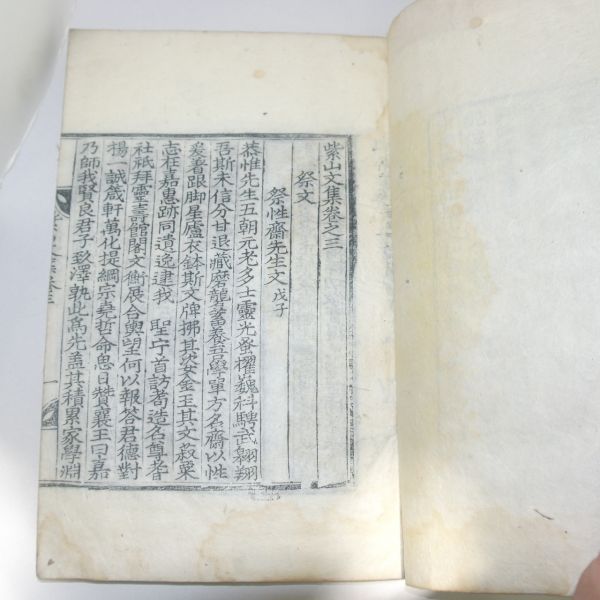 紫山文集卷之三
祭文
祭性齋先生文 戊子
恭惟先生五朝元老多士靈光蚤擢巍科騁武翱翔
吾斯未信分甘退藏磨礱蓄養吾學單方名齋以性
爰着跟脚星廬衣鉢斯文牌挪其袋金玉其文菽粟
志在嘉惠跡同遺逸逮我 聖宁首訪著造名尊耆
社祗拜靈壽館閣文衡展合輿望何以報答君德對
揚一誠葴軒萬化提綱宗堯哲命思日贊襄王曰嘉
乃師我賢良君子致澤孰此爲先盖其積累家學淵